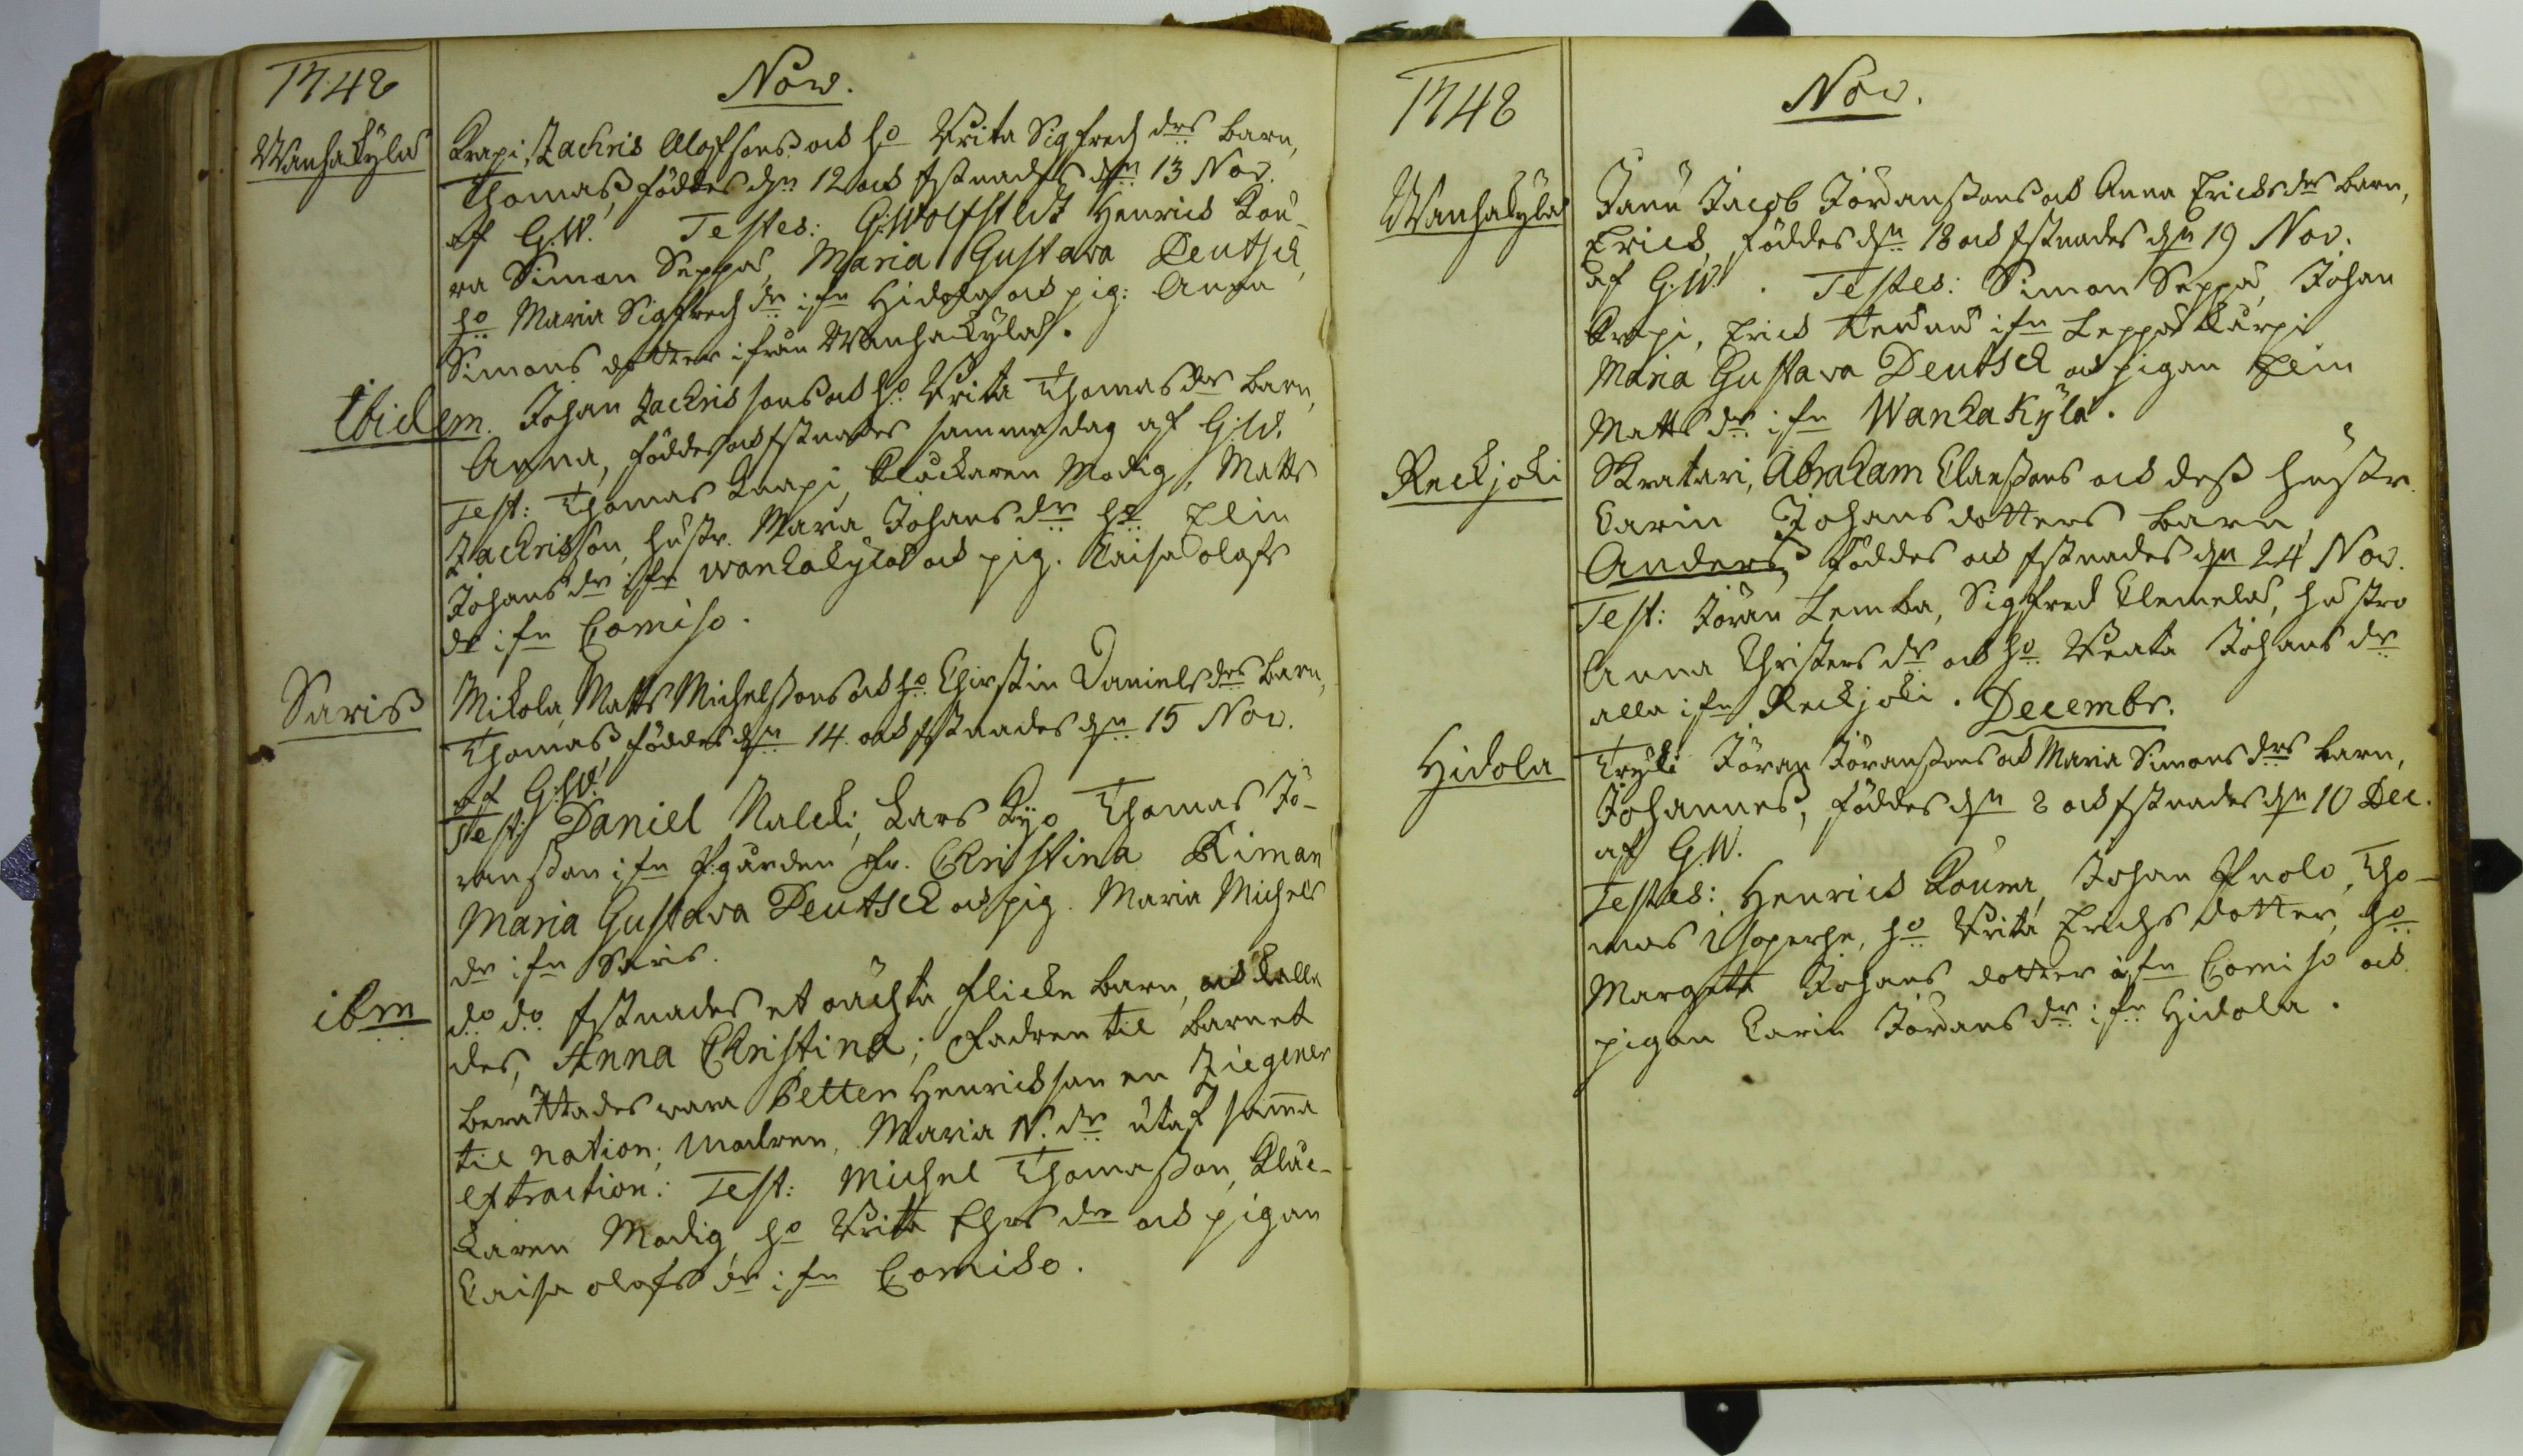 1748
Nov.
Wanhakylä
Krapi, Zachris Olofsons och ho Brita Sigfreds drs barn,
Thomas, föddes dn 12 och xstnades dn 13 Nov.
af G.W. Testes: G: Wolfstedt Henrich Rou-
va Simon Seppä, Maria Gustava Deutsch,
ho Maria Sigfreds dr ifn Hidola och pig: Anna
Simons dotter ifrån Wanhakylä.
Ibidem.
Johan Zachrissons och ho Brita Thomas drs barn,
Anna, föddes och xstnades samma dag af G.W.
Test: Thomas Krapi, Kluckaren Modig, Matts
Zachrisson, hustr. Maria Johans dr ho Elin
Johans dr ifn wanhakylä och pig. Caisa olofs
dr ifn Comiso.
Saris
Mikola, Matts Michelssons och ho Christin Daniels drs barn,
Thomas, föddes dn 14. och xstnades dn 15 Nov.
af G.W.
Test: Daniel Nalcki, Lars Kyö Thomas Jö-
ransson ifn P.gården fr. Christina Kiman
Maria Gustava Deutsch och pig. Maria Michels
dr ifn Saris.
ibm
do do xstnades et oächta flicke barn, och kalla
des, Anna Christina; Fadren til barnet
berättades vara Petter Henrichson en Ziegener
til nation; Modren, Maria N. dr utaf samma
extraction. Test: Michel Thomasson, Kluc-
karen Modig, ho Brita Ehrs dr och pigan
Caisa olofs dr ifn Comiso.
1748
Nov.
Wanhakylä
Janu Jacob Jöranssons och Anna Erichs drs barn,
Erich, föddes dn 18 och xstnades dn 19 Nov.
af G.W. Testes: Simon Seppä, Johan
Krapi, Erich ifn Leppäkurpi
Maria Gustava Deutsch och pigan Elin
Matts dr ifn Wanhakylä.
Reckjoki
Skratari, Abraham Clanssons och dess hustr.
Carin Johansdotters barn,
Anders, föddes och xstnades dn 24 Nov.
Test: Jöran Lemba, Sigfred Clemelä, hustro
Anna Christers dr och ho Beata Johans dr
alla ifn Reckjoki. Decembr.
Hidola
Tryki Jöran Jöranssons och Maria Simons drs barn,
Johannes, föddes dn 8 och xstnades dn 10 Dec.
af G.W.
Testes: Henrich Rouva, Johan Puolo, Tho-
mas ho Brita Erichs dotter, ho
Margeta Johans dotter ifn Comiso och
pigan Carin Jörans dr ifn Hidola.